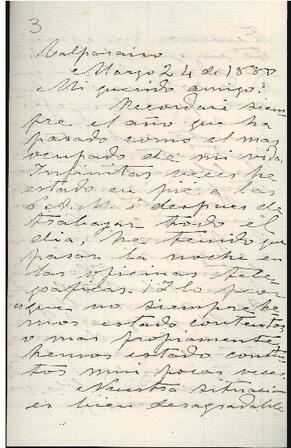 3
Valparaiso
Marzo 24 de 1880
Mi querido amigo:
Recordaré siem-
pre el año que ha
pasado como el mas
ocupado de mi vida.
Infinitas veces he
estado en pie a las
6 A.M. i despues de
trabajar todo el
dia, he tenido que
pasar la noche en
las oficinas tele-
graficas. I lo peor
es que no siempre he-
mos estado contentos
o mas propiamente
hemos estado conten-
tos mui pocas veces.
Nuestra situacion
es bien desagradable